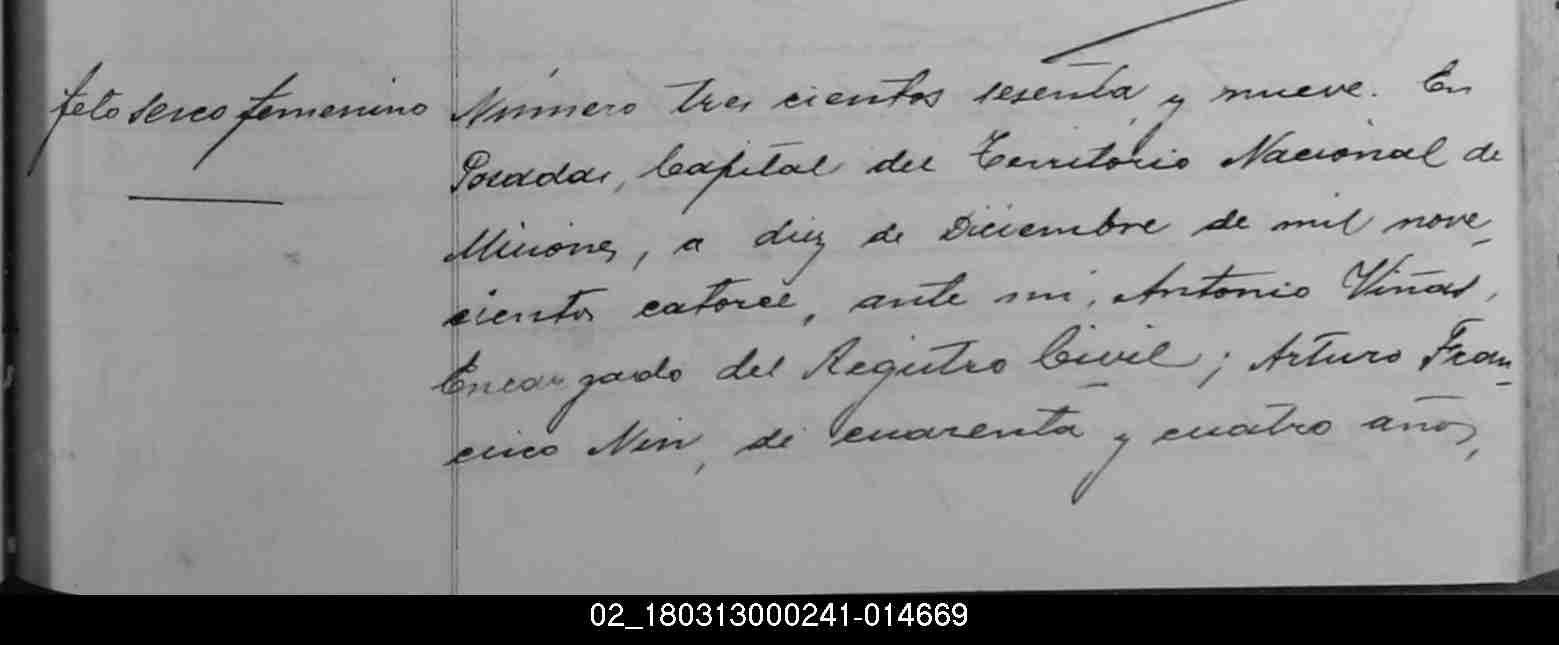 feto sexo femenino
Número tres cientos sesenta y nueve. En
Posadas, Capital del Territorio Nacional de
Misiones, a diez de Diciembre de mil nove
cientos catorce, ante mi, Antonio Viñas,
Encargado del Registro Civil; Arturo Fran
cisco Nin, de cuarenta y cuatro años,
02_180313000241-014669